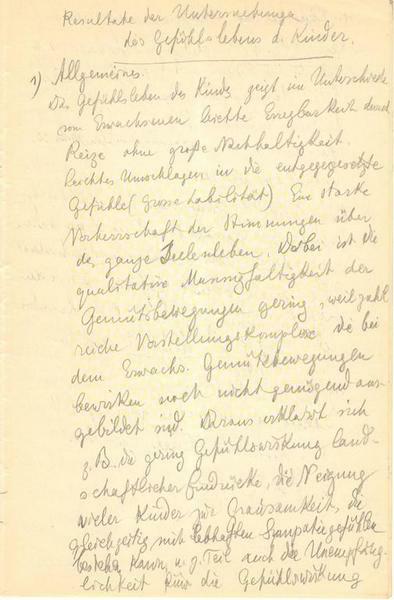 Resultate der Untersuchungen
des Gefühlslebens d. Kinder.
1) Allgemeines.
Das Gefühlsleben des Kindes zeigt im Unterschiede
vom Erwachsenen leichte Erregbarkeit durch
Reize ohne große Nachhaltigkeit.
leichtes Umschlagen in die entgegengesetzte
Gefühle (Grosse Labilität) Eine starke
Vorherrschaft der Stimmungen über
das ganze Seelenleben. Dabei ist die
qualitative Mannigfaltigkeit der
Gemütsbewegungen gering, weil zahl
reiche Vorstellungskomplexe die bei
dem Erwachs. Gemütsbewegungen
bewirken noch nicht genügend aus-
gebildet sind. Daraus erklärt sich
z. B. die gering Gefühlswirkung land-
schaftlicher Eindrücke, die Neigung
vieler Kinder zur Grausamkeit, die
gleichzeitig mit lebhaften Sympatiegefühlen
bestehen kann, u. z. Teil auch die Unempfäng-
lichkeit für die Gefühlswirkung